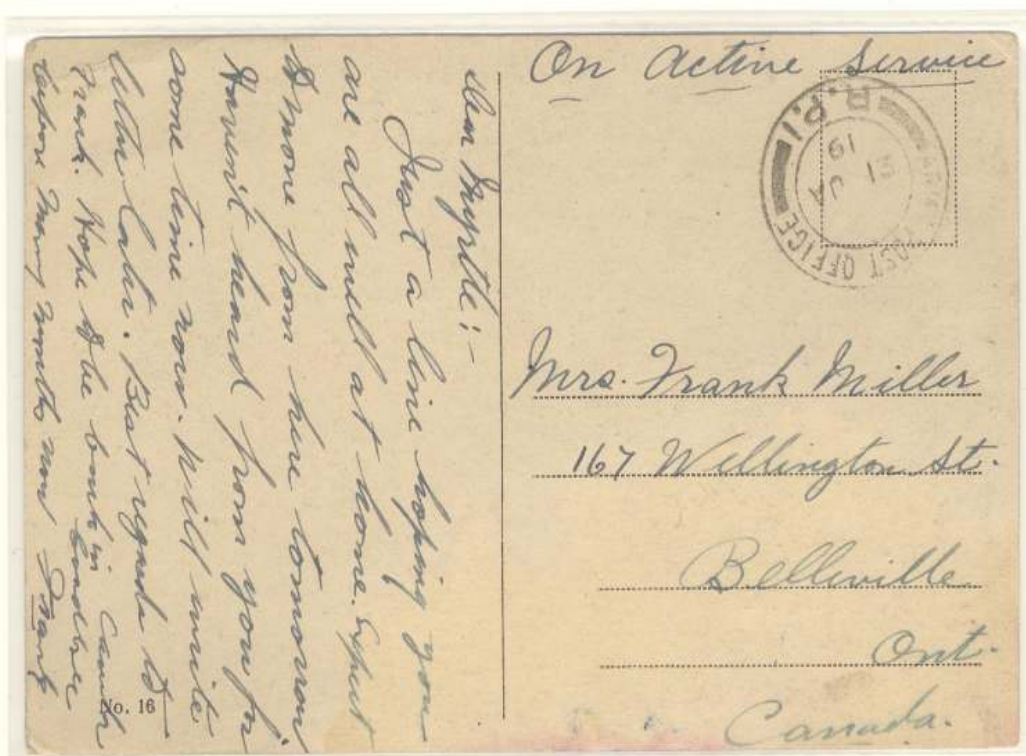 On Active Service
ARMY POST OFFICE
R.P.1
JA
19
Mrs. Frank Miller
167 Wellington St.
Belleville
Ont.
Canada.
Dear Myrtle:-
Just a line hoping you
are all well at home. Expect
to move from here tomorrow
Haven't heard from you for
some time now. Will write
letter later. Best regards to
Frank. Hope to be back in
before many months now
No. 16